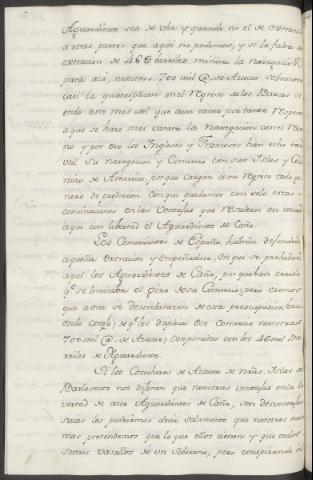 Aguardiente sea de Uba y quando no el se extraera
á otras partes que aqui no podemos, y si la falta de
extracion de 46@ barriles minora la navegacion
para acá, nuestras 700 mil @. de Azucar
la quatriplican en el Regreso de los Barcos si
endo este mas util que aun tanto por tanto respecto
aque se hace mas varata la Navegacion con el Retor
no y por eso los Ingleses y Franceses han echo tan
util su navegacion y Comercio con sus Yslas y Colo
nias de America, porque cargan de su Regreso todo ge
nero de produccion con que quedamos con solo estas
convinaciones en las Ventajas que resultan en
aqui con libertad el Aguardiente de Caña.
Los Comerciantes de España habrán defendido
aquella extracion y empeñadose, en que se prohibiera
aqui los Aguardientes de Caña, por que han creido
qe. se limitaba el giro de su Comercio, pero creemos
que aora se desembarazen de esta preocupacion
endo que se les duplica ese comercio nuestras
700 mil @. de Azucar, conpenzadas con los 46 mil Ba
rriles de Aguardiente.
Si los Cosecheros de Azucar de mas. Yslas de
Barlovento nos diran que nuestras ventajas en la li
vertad de aver Aguardientes de Caña, son desventajas
suias les podriamos decir solamente que nosotros no
mas pretendemos que lo que ellos tienen y que todos
somos vasallos de un Soberano, pero conspirando